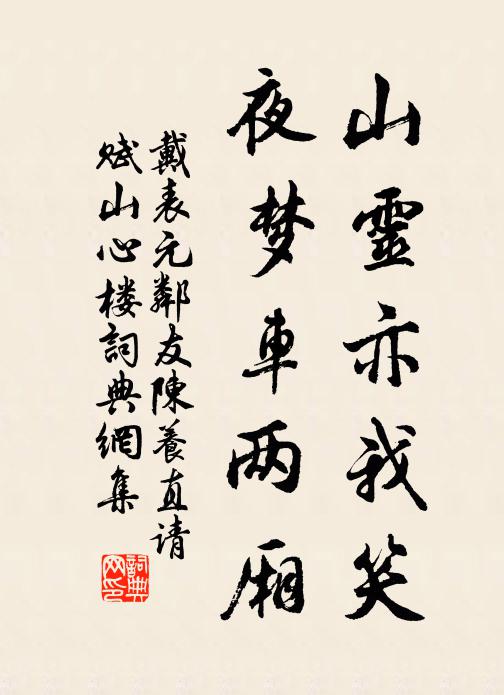 山靈亦我笑
夜梦車两厢
戴表元鄰友陳養直请
赋山心楼詞典網集
詞典
网印